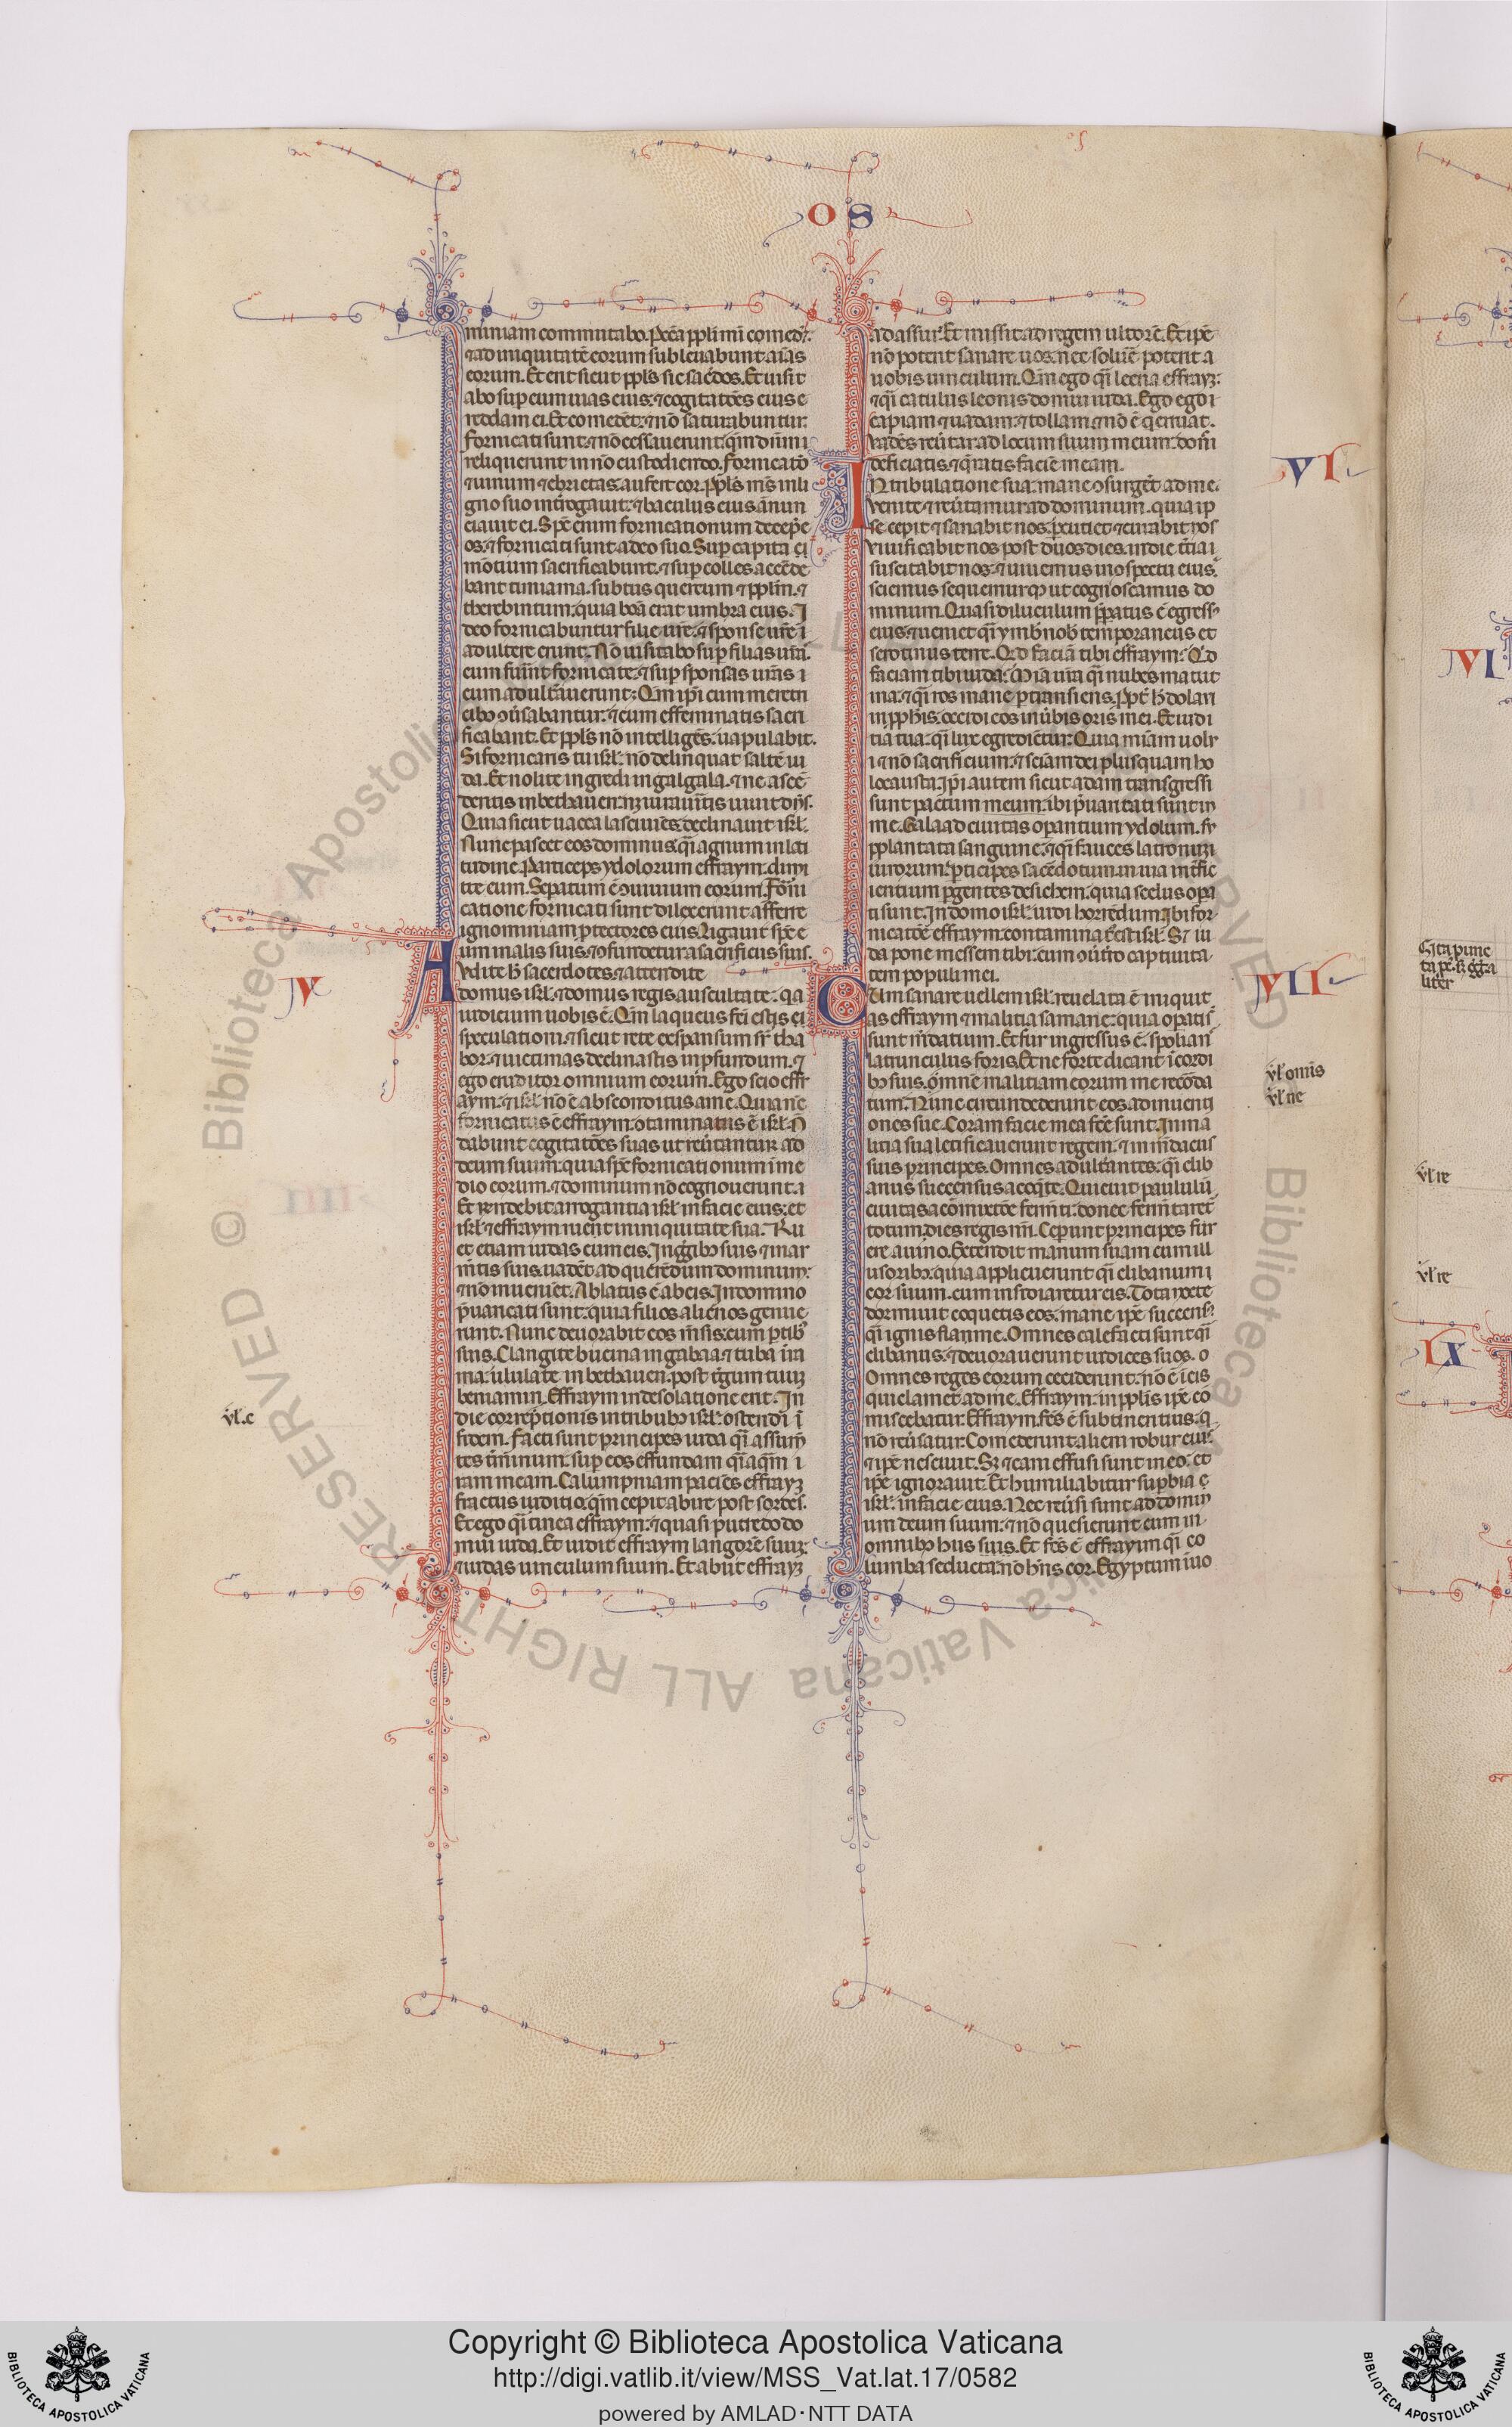 OS
miniam commutabo. Pcc̄a ppl̄i mi comedēt.
⁊ ad iniquitatē eorum subleuabunt aīas
eorum. Et erit sicut ppl̄s sic sac̄dos. Et uisit
abo sup eum uias eius. ⁊ cogitatōes eius
reddam ei. Et comedēt. ⁊ nō saturabuntur.
fornicati sunt. ⁊ nō cessauerunt. qm̄ dn̄m
reliquerunt in nō custodiendo. fornicatō
⁊ uinum ⁊ ebrietas. aufert cor. Ppl̄s m̄s in li
gno suo int̄rogauit. ⁊ baculus eius ānun
ciauit ei. Sp̄c enim fornicationum decep̄c
os. ⁊ fornicati sunt a deo suo. Sup capita
mōtium sacrificabunt. ⁊ sup colles accēde
bant timiama. subtus quercum ⁊ ppl̄m. ⁊
therebintum. quia bōa erat umbra eius. I
deo fornicabuntur filie ur̄e. ⁊ sponse ur̄e
adultere erunt. Nō uisitabo sup filias ur̄as
cum fu̇int fornicate. ⁊ sup sponsas ur̄as
cum adult̄auerunt. Qm̄ ip̄i cum meretri
cib; ɔu̇sabantur. ⁊ cum effeminatis sacri
ficabant. Et ppl̄s nō intelligēs. uapulabit.
Si fornicaris tu isrl̄. nō delinquat saltē iu
da. Et nolite ingredi in galgala. ⁊ ne ascē
deritis in bethauen. nꝫ iurau̇itis uiuit dn̄s.
Quia sicut uacca lasciuiēs. declinauit isrl̄.
Nunc pascet eos dominus. qͣi agnum in lati
tudine. Particeps ydolorum effraym. dimi
tte eum. Sep̱atum ē ɔuiuium eorum. Forni
catione fornicati sunt. dilexerunt afferre
ignominiam p̱tectores eius. Ligauit sp̄c e
um in alis suis. ⁊ ɔfundetur a sacrificiis suis.
V
AVdite h̄ sacerdotes. ⁊ attendite
domus isrl̄. ⁊ domus regis auscultate. qa
iudicium uobis ē. Qm̄ laqueus fc̄i estis
speculationi. ⁊ sicut rete expansum sr̄ tha
bor. ⁊ uictimas declinastis in p̱fundum. ⁊
ego eruditor omnium eorum. Ego scio effr
aym. ⁊ isrl̄ nō ē absconditus a me. Quia nc̄
fornicatus ē effraym. ɔtaminatus ē isrl̄. N̄
dabunt cogitatōes suas ut reu̇tantur ad
deum suum. quia sp̄c fornicationum ī me
dio eorum. ⁊ dominum nō cognouerunt.
Et rn̄debit arrogantia isrl̄ in facie eius. et
isrl̄ ⁊ effraym ruent in iniquitate sua. Ru
et etiam iudas cum eis. In gͥgib; suis ⁊ in ar
m̄tis suis. uadēt ad querēdum dominum.
⁊ nō inueniēt. Ablatus ē ab eis. In domino
p̱uaricati sunt. quia filios aliēnos genue
runt. Nunc deuorabit eos m̄sis. cum ptib;
suis. Clangite bucina in gabaa. ⁊ tuba in ra
ma. ululate in bethauen. post t̄gum tuuꝫ
beniamin. Effraym in desolatione erit. In
vl̄. c
die correptionis in tribub; isrl̄ ostendi
fidem. Facti sunt principes iuda qͣi assum̄
tes t̄minum. sup eos effundam qͣi aqͣm i
ram meam. Calumpniam paciēs effrayꝫ
fractus iuditio. qm̄ cepit abire post sordes.
Et ego qͣi tinea effraym. ⁊ quasi putredo do
mui iuda. Et uidit effraym langorē suuꝫ.
⁊ iudas uinculum suum. Et abiit effrayꝫ
ad assur. Et missit ad regem ultorē. Et ip̄e
nō poterit sanare uos. nec solue̅ poterit a
uobis uinculum. Qm̄ ego qͣi leena effrayꝫ.
⁊ qͣi catulus leonis domui iuda. Ego ego
capiam ⁊ uadam. ⁊ tollam. ⁊ nō ē q̇ eruat.
Vadēs reu̇tar ad locum suum meum. donec
deficiatis. ⁊ qͥratis faciē meam.
VI
IN tribulatione sua. mane ɔsurgēt ad me.
Venite ⁊ reu̇tamur ad dominum. quia ip
se cepit ⁊ sanabit nos. p̱cutiet ⁊ curabit nos
Viuificabit nos post duos dies. in die t̄tia
suscitabit nos. ⁊ uiuemus in ɔspectu eius.
sciemus sequemurq; ut cognoscamus do
minum. Quasi diluculum p̄patus ē egress;
eius. ⁊ ueniet qͣi ymb̄ nob̄ temporaneus et
serotinus terre. Qd̄ faciā tibi effraym. Qd̄
faciam tibi iuda. Mīa ur̄a qͣi nubes matut
ina. ⁊ qͣi ros mane p̱transiens. Ppt̄ h̄ dolaui
in pph̄is. occidi eos in u̇bis oris mei. Et iudi
tia tua. qͣi lux egredientur. Quia mīam uolu
i ⁊ nō sacrificium. ⁊ sciam̄ dei plusquam ho
locausta. Ip̄i autem sicut adam transgressi
sunt pactum meum. ibi p̱uaricati sunt in
me. Galaad ciuitas op̱antium ydolum.
sp̱plantata sanguine. ⁊ qͣi fauces latronum
uirorum. p̱ticipes sacēdotum. in uia int̄fic
ientium p̱gentes de sichem. quia scelus op̱a
ti sunt. In domo isrl̄ uidi horrēdum. Ibi for
nicatōe effraym. contaminat̄ est isrl̄. S; iu
da pone messem tibi. cum ɔu̇tero captiuita
tem populi mei.
VII
CVm sanare uellem isrl̄. reuelata ē iniquit
as effraym ⁊ malitia samarie. quia op̱ati
sunt m̄datium. Et fur ingressus ē. spolians
latrunculus foris. Et ne forte dicant ī cordi
vl̄ om̄is
b; suis. omne malitiam eorum me recōda
vl̄ ne
tum. Nunc circundederunt eos adinuenti
ones sue. Coram facie mea fc̄e sunt. In ma
litia sua letificauerunt regem. ⁊ in m̄daciis
suis principes. Omnes adult̄antes. qͣi clib
anus succensus a coqͤnte. Quieuit paululū
ciuitas a cōmixtōe fermn̄ti. donec fermn̄taret̄
totum. dies regis nr̄i. Ceperunt principes fur
ere a uino. Extendit manum suam cum ill
usorib;. quia applicuerunt qͣi clibanum
cor suum. cum insidiaretur eis. Tota nocte
dormiuit coquētis eos. mane ip̄e succens;
qͣi ignis flamme. Omnes calefacti sunt qͣi
clibanus. ⁊ deuorauerunt iudices suos.
Omnes reges eorum ceciderunt. nō ē ī eis
qui clamet ad me. Effraym in ppl̄is ip̄e co
miscebatur. Effraym fc̄s ē subcinericius. q
nō reu̇satur. Comederunt alieni robur eius
⁊ ip̄e nesciuit. S; ⁊ cani effusi sunt in eo. et
ip̄e ignorauit. Et humiliabitur sup̱bia
isrl̄ in facie eius. Nec reu̇si sunt ad domin
um deum suum. ⁊ nō quesierunt eum in
omnib; hiis suis. Et fc̄s ē effraym qͣi co
lumba seducta. nō hn̄s cor. Egyptum iuo
Copyright © Biblioteca Apostolica Vaticana
http://digi.vatlib.it/view/MSS_Vat.lat.17/0582
powered by AMLAD·NTT DATA
BIBLIOTECA APOSTOLICA VATICANA
BIBLIOTECA APOSTOLICA VATICANA
© Biblioteca Apostolica Vaticana ALL RIGHTS RESERVED
VI
vl̄ re
vl̄ re
IX